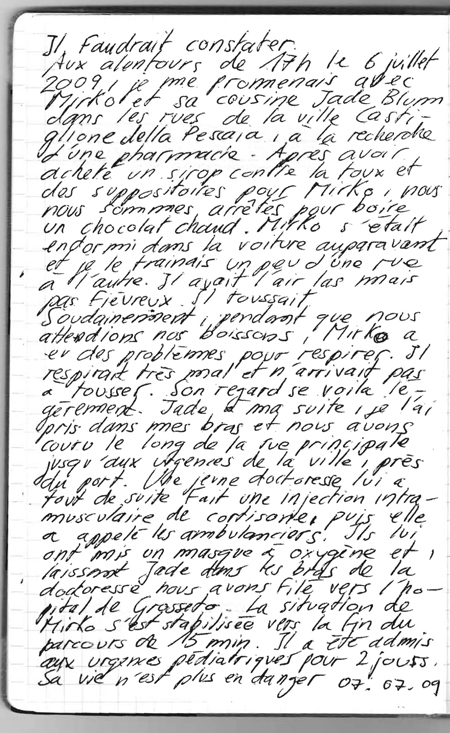 Il faudrait constater.
Aux alentours de 17h le 6 juillet
2009, je me promenais avec
Mirko et sa cousine Jade Blum
dans les rues de la ville Casti-
glione della Pescaia, à la recherche
d'une pharmacie. Après avoir
acheté un sirop contre la toux et
des suppositoires pour Mirko, nous
nous sommes arrêtés pour boire
un chocolat chaud. Mirko s'était
endormi dans la voiture auparavant
et je le trainais un peu d'une rue
à l'autre. Il avait l'air las mais
pas fiévreux. Il toussait.
Soudainement, pendant que nous
attendions nos boissons, Mirko a
eu des problèmes pour respirer. Il
respirait très mal et n'arrivait pas
à tousser. Son regard se voila lé-
gèrement. Jade à ma suite, je l'ai
pris dans mes bras et nous avons
couru le long de la rue principale
jusqu'aux urgences de la ville, près
du port. Une jeune doctoresse lui a
tout de suite fait une injection intra-
musculaire de cortisone, puis elle
a appelé les ambulanciers. Ils lui
ont mis un masque à oxygène et,
laissant Jade dans les bras de la
doctoresse nous avons filé vers l'hô-
pital de Grosseto. La situation de
Mirko s'est stabilisée vers la fin du
parcours de 15 min. Il a été admis
aux urgences pédiatriques pour 2 jours.
Sa vie n'est plus en danger 07.07.09